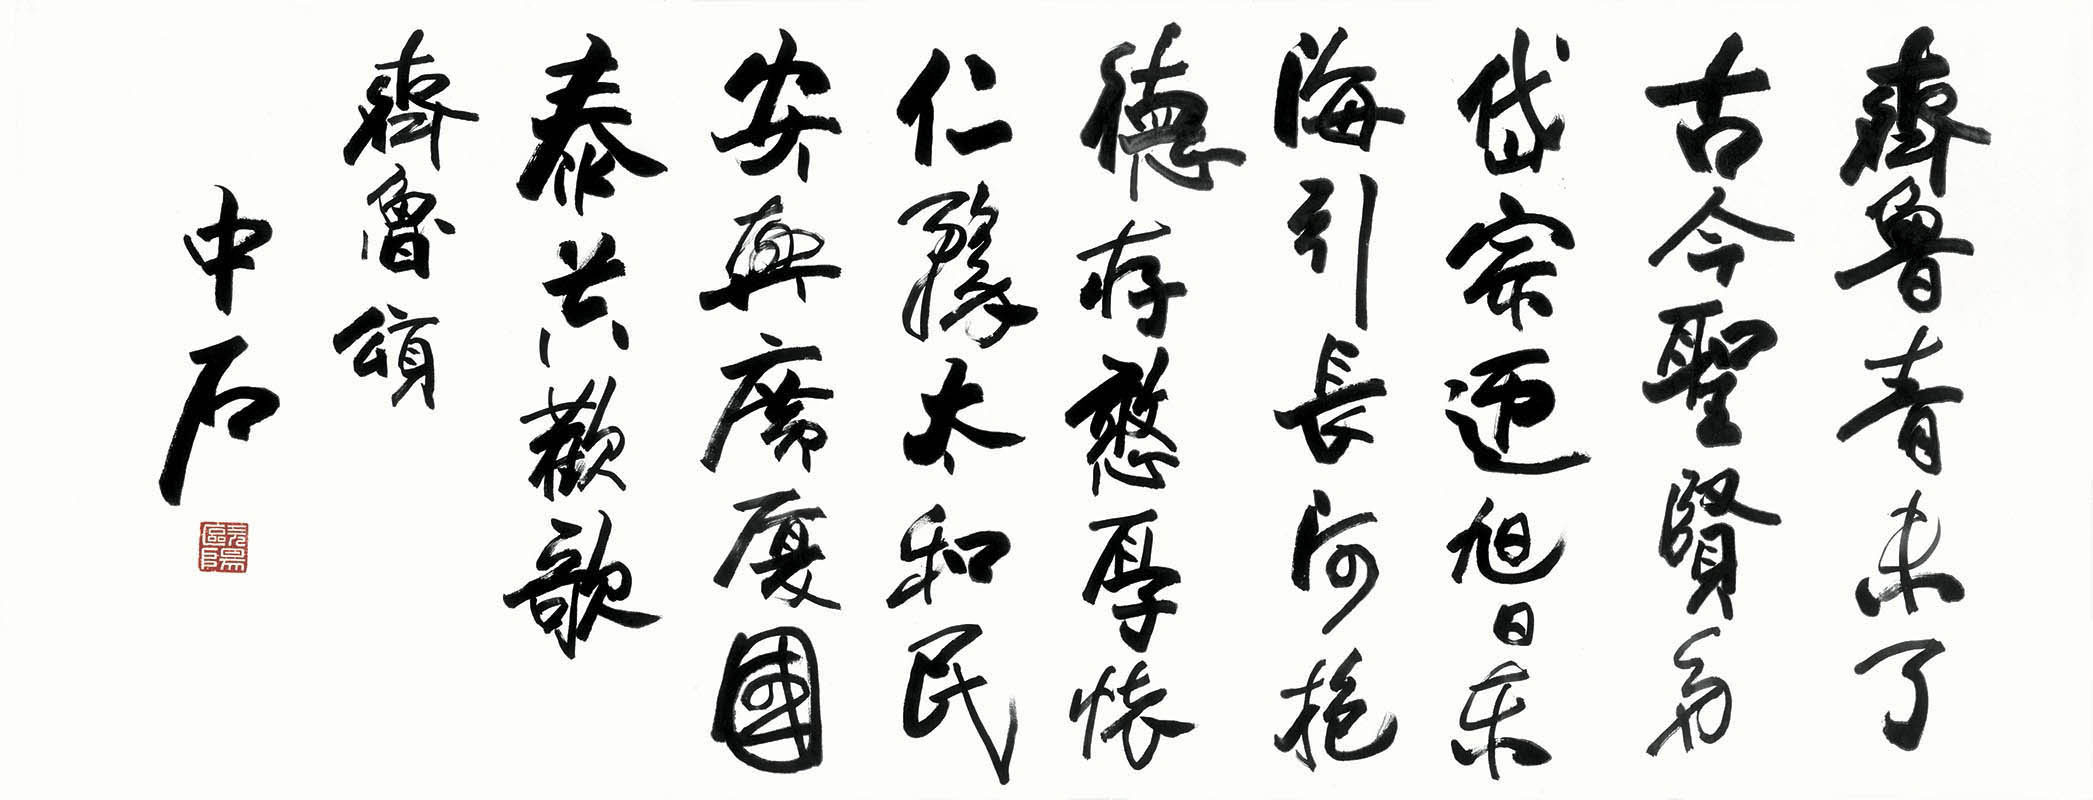 齊魯青未了
古今聖賢多
岱宗迎旭日東
海引長河抱
德存憨厚懷
仁豫太和民
安興廣廈國
泰共歡歌
齊魯頌
中石